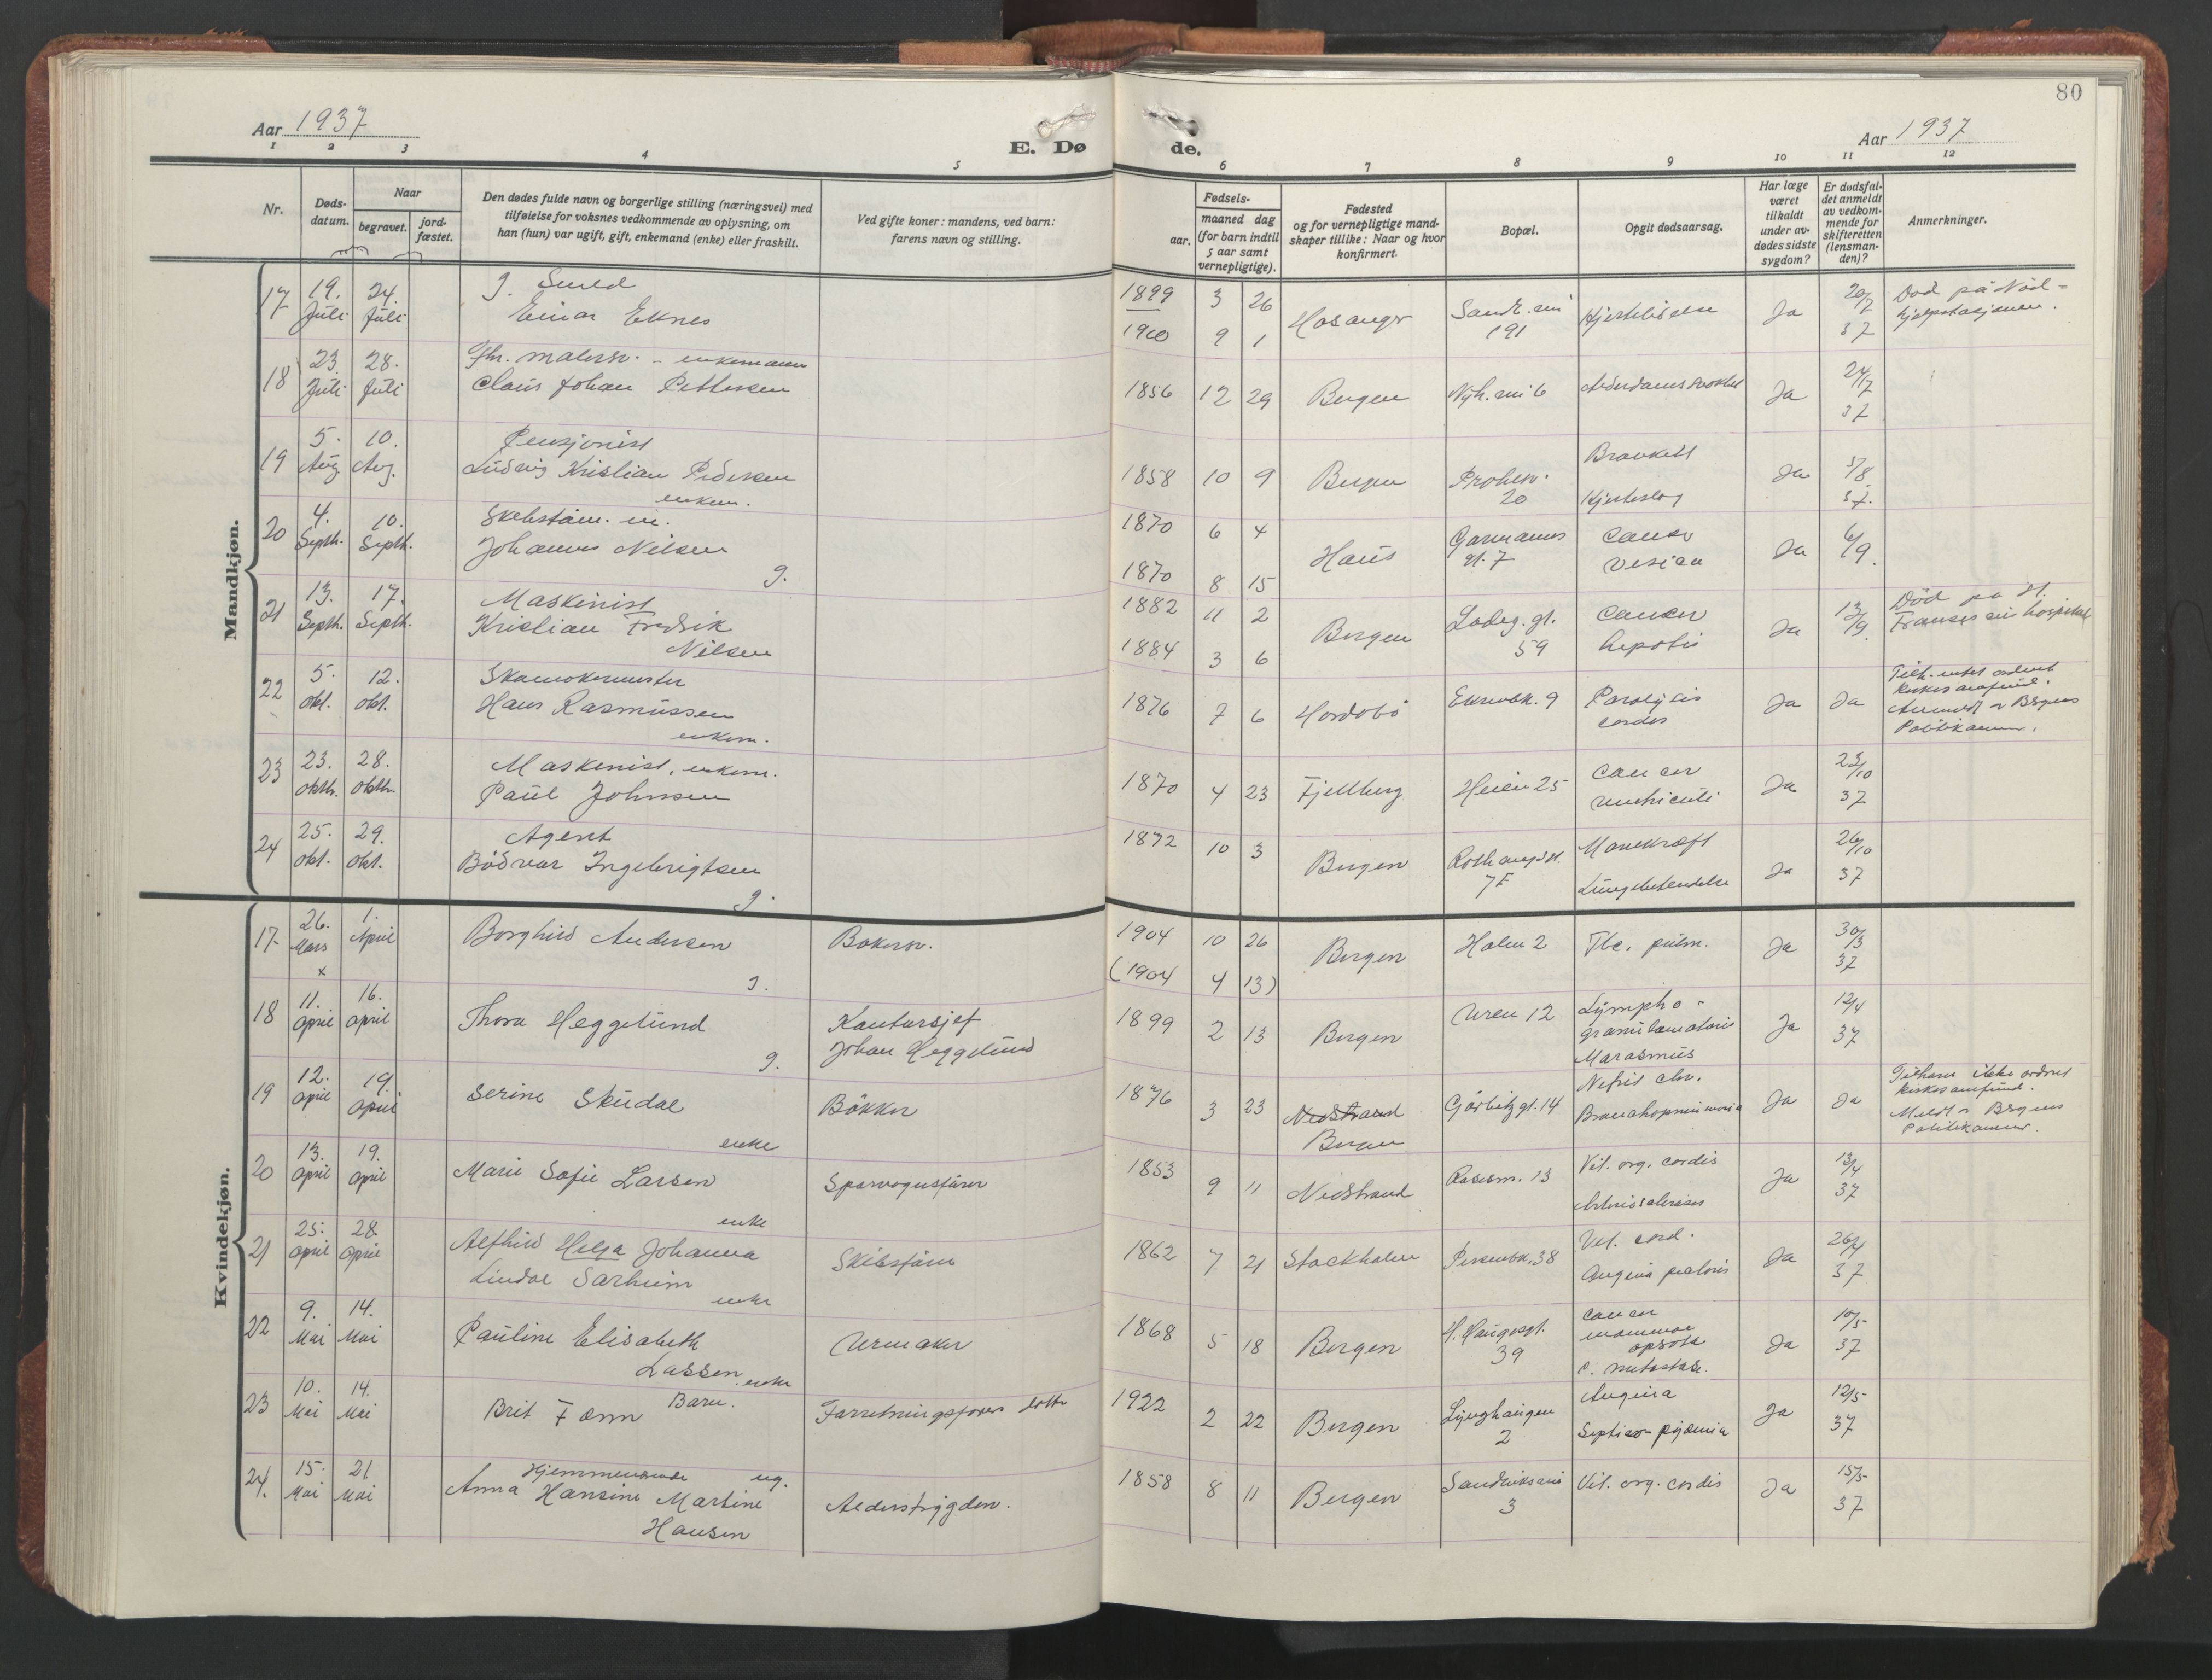 80
Aar 1937
E. Dø
de.
Aar 1937
1 2 3 4 5 6 7 8 9 10 11 12
Nr.
Døds-
datum.
Naar
begravet.
jord-
fæstet.
Den dødes fulde navn og borgerlige stilling (næringsvei) med
tilføielse for voksnes vedkommende av oplysning, om
han (hun) var ugift, gift, enkemand (enke) eller fraskilt.
Ved gifte koner: mandens, ved barn:
farens navn og stilling.
Fødsels-
aar.
maaned dag
(for barn indtil
5 aar samt
vernepligtige).
Fødested
og for vernepligtige mand-
skaper tillike: Naar og hvor
konfirmert.
Bopæl.
Opgit dødsaarsag.
Har læge
været
tilkaldt
under av-
dødes sidste
sygdom?
Er dødsfal-
det anmeldt
av vedkom-
mende for
skifteretten
(lensman-
den)?
Anmerkninger.
Mandkjøn.
17 19. Juli 24. Juli
g. Smed
Einar Eknes
1899 3 26
1900 9 1
Hosanger
191
Ja
20/7 37
Død på
18 23. Juli 28. Juli
enkemann
Claus Johan Pettersen
1856 12 29 Bergen
Ja 24/7 37
19 5. Aug 10. Aug.
Pensjonist
Ludvig Kristian Pedersen
enkem.
1858 10 9 Bergen
20
Ja 5/8 37.
20 4. Septb. 10. Septb.
Johannes Nilsen
g.
1870 6 4
1870 8 15
Haus
Garmanns
gt. 7
Cancer
vesica
Ja 6/9.
21 13. Septb. 17. Septb.
Maskinist
Kristian Fredrik
Nilsen
1882 11 2
1884 3 6
Bergen
Ladeg. gt.
59
Cancer
hepatis
Ja 13/9.
Død på St.
hospital
22 5. okt. 12. okt.
Hans Rasmussen
enkem.
1876 7 6
Ekrebk. 9
Paralysis
cordis
Ja Ja
Bergens
Politikammer.
23 23. oktb. 28. oktb.
Maskinist, enkem.
Paul Johnsen
1870 4 23 Fjellberg
Heien 25
Cancer
ventriculi
Ja 23/10 37
24 25. okt. 29. okt.
Agent
Bødvar Ingebrigtsen
g.
1872 10 3 Bergen
7E
Mavekræft
Lungebetendelse
Ja 26/10 37
Kvindekjøn.
17. 26. Mars x 1. April
Borghild Andersen
g.
Bakersv.
1904 10 26
(1904 4 13)
Bergen Holen 2 Tbc. pulm. Ja 30/3 37
18 11. April 16. April
Thora Heggelund
g.
Kontorsjef
Johan Heggelund
1899 2 13 Bergen Uren 12
Lympho-
granulomatosis
Marasmus
Ja 12/4 37
19 12. April 19. April
Serine Skudal
enke
Bøkker
1876 3 23
Nedstrand
Bergen
Gørbitzgt. 14
Nefrit chr.
Bronchopneumonia
Ja Ja
Tilhører ikke ordnet
kirkesamfund.
Meldt Bergens
Politikammer.
20 13. April 19. April
Marie Sofie Larsen
enke
Sporvognsfører
1853 9 11 Nedstrand
13
Vit. org. cordis
Arteriosclerosis
Ja 13/4 37
21 25. April 28 April
Alfhild Helga Johanna
enke
1862 7 21 Stockholm
38
Vit. cord.
Angina pectoris
Ja 26/4 37
22 9. Mai 14. Mai
Pauline Elisabeth
Lassen enke
Urmaker
1868 5 18 Bergen
H. Haugesgt.
39
Cancer
mammae
c. metastase.
Ja 10/5 37
23 10. Mai 14. Mai
Brit Fønn Barn.
Forretningsfører
1922 2 22 Bergen
Lynghaugen
2
Angina
Septico-pyæmia
Ja 12/5 37
24. 15. Mai 21 Mai
Hjemmeværende ug.
Anna Hansine Martine
Hansen
Alderstrygden.
1858 8 11 Bergen
3
Vit. org. cordis
Ja 15/5 37